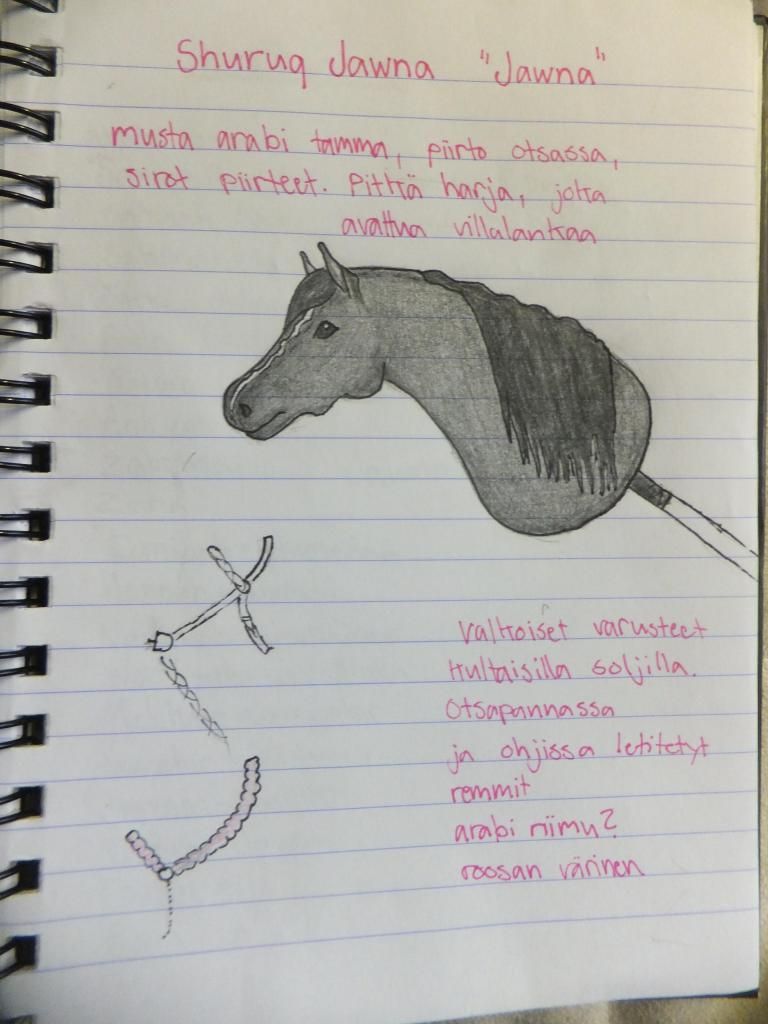 Shuruq Jawna "Jawna"
musta arabi tamma, piirto otsassa,
sirot piirteet. Pitkä harja, joka
avattua villalankaa
Valkoiset varusteet
kultaisilla soljilla.
Otsapannassa
ja ohjissa letitetyt
remmit
arabi riimu?
roosan värinen